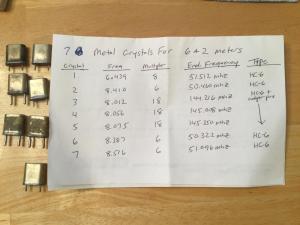 7 Metal Crystals For 6 & 2 meters
Crystal Freq Multipler End Frequency Type
1 6.439 8 51.512 mhz HC-6
2 8.410 6 50.460 mhz HC-6
3 8.012 18 144.216 mhz HC-6 +
4 8.056 18 145.008 mhz
5 8.075 18 145.350 mhz
6 8.387 6 50.322 mhz HC-6
7 8.516 6 51.096 mhz HC-6